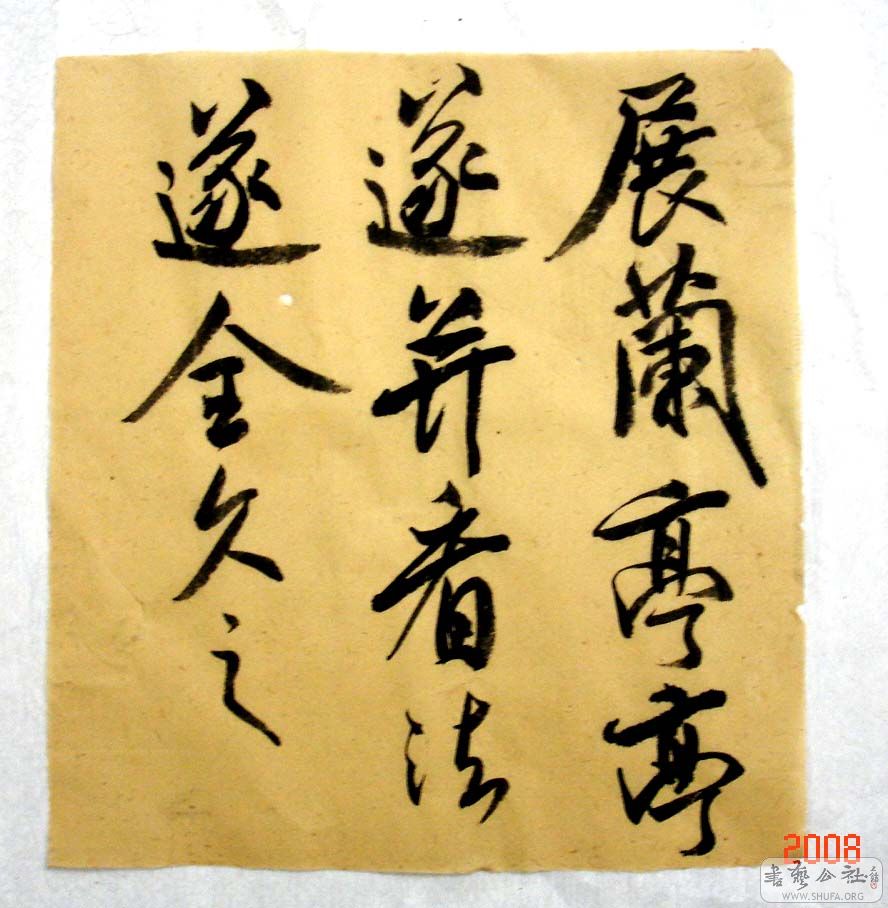 展蘭亭亭
遂并看法
遂全久之
2008
書藝公社
WWW.SHUFA.ORG